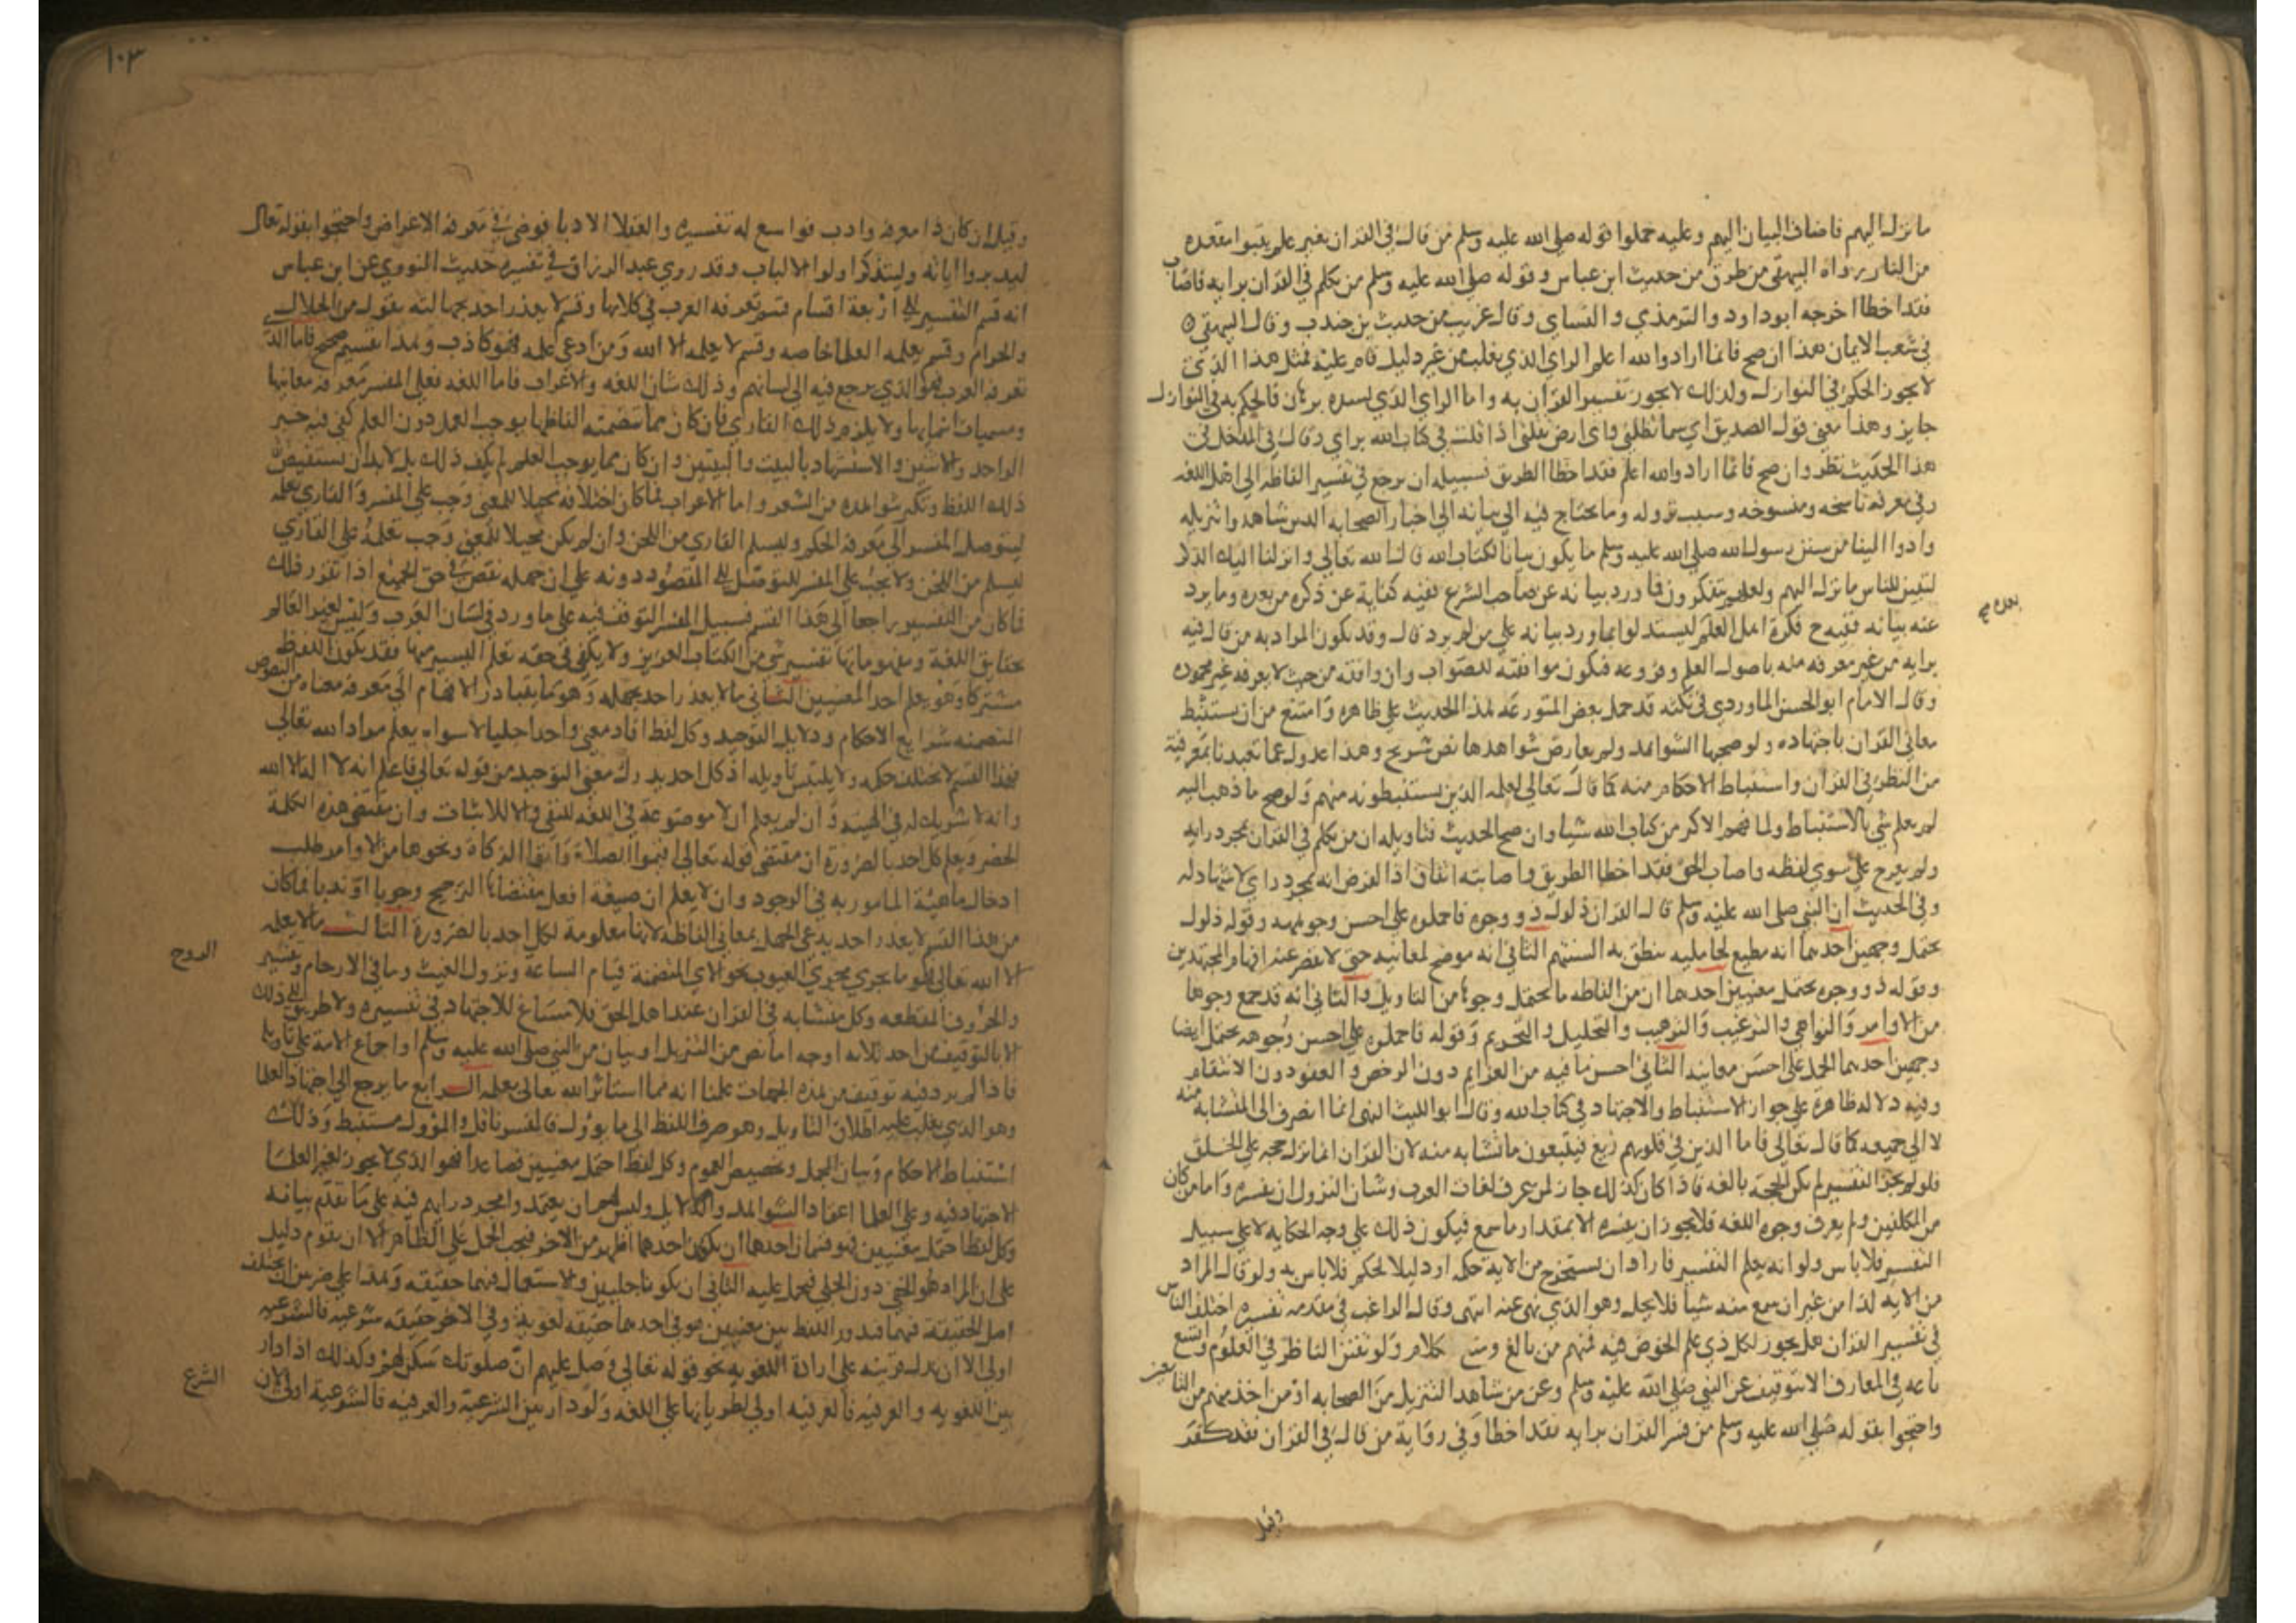 ما نزل اليهم فاضاف البيان اليهم وعليه حملوا قوله صلى الله عليه وسلم من قال في القران بغير علم يتبوا مقعده
من النار رواه البيهقي من طرق من حديث ابن عباس وقوله صلى الله عليه وسلم من تكلم في القران برايه فاصاب
فقد اخطا اخرجه ابو داود والترمذي والنساي وقال غريب من حديث بن جندب وقال البيهقي
في شعب الايمان هذا ان صح فانما اراد والله اعلم الراي الذي يغلب من غير دليل قام عليه فمثل هذا الذي
لا يجوز الحكم في النوازل ولذلك لا يجوز تفسير القران به واما الراي الذي يسنده برهان فالحكم به في النوازل
جايز وهذا معنى قول الصديق اي سما تظلني واي ارض تقلني اذا قلت في كتاب الله براي وقال في المدخل في
هذا الحديث نظر وان صح فانما اراد والله اعلم فقد اخطا الطريق فسبيله ان يرجع في تفسير الفاظه الى اهل اللغه
وفي معرفه ناسخه ومنسوخه وسبب نزوله وما يحتاج فيه الى بيانه الى اخبار الصحابه الذين شاهدوا تنزيله
وادوا الينا من سنن رسول الله صلى الله عليه وسلم ما يكون بيانا لكتاب الله قال الله تعالى وانزلنا اليك الذكر
لتبين للناس ما نزل اليهم ولعلهم يتفكرون فما ورد بيانه عن صاحب الشرع ففيه كفاية عن ذكره من بعده وما يرد
بعده صح
عنه بيانه ففيه ح فكرة اهل العلم ليستدلوا بما ورد بيانه على من لم يرد قال وقد يكون المراد به من قال فيه
برايه من غير معرفه منه باصول العلم وفروعه فيكون موافقته للصواب وان وافقه من حيث لا يعرفه غير محموده
وقال الامام ابو الحسن الماوردي في نكته قد حمل بعض المتورعه هذا الحديث على ظاهره وامتنع من ان يستنبط
معاني القران باجتهاده ولو صحبها الشواهد ولم يعارض شواهدها نص صريح وهذا عدول عما تعبدنا بمعرفته
من النظر في القران واستنباط الاحكام منه كما قال تعالى لعلمه الذين يستنبطونه منهم ولو صح ما ذهب اليه
لم يعلم شي بالاستنباط ولما فهم الاكثر من كتاب الله شيا وان صح الحديث فتاويله ان من تكلم في القران بمجرد رايه
ولم يعرج على سوى لفظه واصاب الحق فقد اخطا الطريق واصابته اتفاق اذ الغرض انه مجرد راي لا شاهد له
وفي الحديث ان النبي صلى الله عليه وسلم قال القران ذلول ذو وجوه فاحملوه على احسن وجوهه وقوله ذلول
يحتمل وجهين احدهما انه مطيع لحامليه ينطق به السنتهم الثاني انه موضح لمعانيه حتى لا تقصر عنه افهام المجتهدين
وقوله ذو وجوه يحتمل معنيين احدهما ان من الفاظه ما يحتمل وجوها من التاويل والثاني انه قد جمع وجوها
من الاوامر والنواهي والترغيب والترهيب والتحليل والتحريم وقوله فاحملوه على احسن وجوهه يحتمل ايضا
وجهين احدهما الحمل على احسن معانيه الثاني احسن ما فيه من العزايم دون الرخص والعفو دون الانتقام
وفيه دلاله ظاهرة على جواز الاستنباط والاجتهاد في كتاب الله وقال ابو الليث النهي انما انصرف الى المتشابه منه
لا الى جميعه كما قال تعالى فاما الذين في قلوبهم زيغ فيتبعون ما تشابه منه لان القران انما نزل حجه على الخلق
فلو لم يجز التفسير لم تكن الحجة بالغه فاذا كان كذلك جاز لمن عرف لغات العرب وشان النزول ان يفسره واما من كان
من المكلفين ولم يعرف وجوه اللغه فلا يجوز ان يفسره الا بمقدار ما سمع فيكون ذلك على وجه الحكايه لا على سبيل
التفسير فلا باس ولو انه يعلم التفسير فاراد ان يستخرج من الاية حكه او دليلا لحكم فلا باس به ولو قال المراد
من الايه كذا من غير ان سمع منه شيا فلا يحل وهو الذي نهى عنه انتهى وقال الراغب في مقدمه تفسيره اختلف الناس
في تفسير القران هل يجوز لكل ذي علم الخوض فيه فمنهم من بالغ ومنع كلام ولو تفنن الناظر في العلوم واتسع
باعه في المعارف الا بتوقيف عن النبي صلى الله عليه وسلم وعن من شاهد التنزيل من الصحابه او من اخذ منهم من التابعين
واحتجوا بقوله صلى الله عليه وسلم من فسر القران برايه فقد اخطا وفي رواية من قال في القران فقد كفر
وقيل
١٠٣
وقيل ان كان ذا معرفه وادب فواسع له تفسيره والعقلا الادبا فوضى في معرفه الاغراض واحتجوا بقوله تعالى
ليدبروا اياته وليتذكر اولوا الالباب وقد روي عبد الرزاق في تفسيره حديث النووي عن ابن عباس
انه قسم التفسير الى اربعة اقسام قسم تعرفه العرب في كلامها وقسم لا يعذر احد بجهالته بقوله من الحلال
والحرام وقسم يعلمه العلما خاصه وقسم لا يعلمه الا الله ومن ادعى علمه فهو كاذب وهذا تقسيم صحيح فاما الذي
تعرفه العرب فهو الذي يرجع فيه الى لسانهم وذلك شان اللغه والاعراب فاما اللغه فعلى المفسر معرفه معانيها
ومسميات اسمايها ولا يلزم ذلك القاري فان كان مما تتضمنه الفاظها يوجب العمل دون العلم كفى فيه خبر
الواحد والاثنين والاستشهاد بالبيت والبيتين وان كان مما يوجب العلم لم يكف ذلك بل لا بد ان يستفيض
ذلك اللفظ وتكثر شواهده من الشعر واما الاعراب فما كان اختلافه محيلا للمعنى وجب على المفسر والقاري تعلمه
ليتوصل المفسر الى معرفة الحكم وليسلم القاري من اللحن وان لم يكن محيلا للمعنى وجب تعلمه على القاري
ليسلم من اللحن ولا يجب على المفسر للتوصل الى المقصود دونه على ان جهله نقص في حق الجميع اذا تقرر ذلك
فما كان من التفسير راجعا الى هذا القسم فسبيل المفسر التوقف فيه على ما ورد في لسان العرب وليس لغير العالم
بحقايق اللغة ومفهوماتها تفسير شي من الكتاب العزيز ولا يكفي في حقه تعلم اليسير منها فقد يكون اللفظ
مشتركا وهو يعلم احد المعنيين الثاني ما لا يعذر احد بجهله وهو ما يتبادر الافهام الى معرفه معناه من النصوص
المتضمنه شرايع الاحكام ودلايل التوحيد وكل لفظ افاد معنى واحدا جليا لا سواه يعلم مراد الله تعالى
فهذا القسم لا يختلف حكمه ولا يلتبس تاويله اذ كل احد يدرك معنى التوحيد من قوله تعالى فاعلم انه لا اله الا الله
وانه لا شريك له في الهيته وان لم يعلم ان لا موضوعة في اللغه للنفي والا للاثبات وان مقتضى هذه الكلمة
الحصر ويعلم كل احد بالضرورة ان مقتضى قوله تعالى اقيموا الصلاة واتوا الزكاة ونحوها من الاوامر طلب
ادخال ماهية المامور به في الوجود وان لا يعلم ان صيغة افعل مقتضاها الترجيح وجوبا او ندبا فما كان
من هذا القسم لا يعذر احد يدعي الجهل بمعاني الفاظه لانها معلومة لكل احد بالضرورة الثالث ما لا يعلمه
الا الله تعالى فهو ما يجري مجرى الغيوب نحو الاي المتضمنة قيام الساعة ونزول الغيث وما في الارحام وتفسير
الروح
والحروف المقطعه وكل متشابه في القران عند اهل الحق فلا مساغ للاجتهاد في تفسيره ولا طريق الى ذلك
الا بالتوقيف من احد ثلاثه اوجه اما نص من التنزيل او بيان من النبي صلى الله عليه وسلم او اجماع الامة على تاويله
فاذا لم يرد فيه توقيف من هذه الجهات علمنا انه مما استاثر الله تعالى بعلمه الرابع ما يرجع الى اجتهاد العلما
وهو الذي يغلب عليه اطلاق التاويل وهو صرف اللفظ الى ما يؤول فالمفسر ناقل والمؤول مستنبط وذلك
استنباط الاحكام وبيان المجمل وتخصيص العموم وكل لفظ احتمل معنيين فصاعدا فهو الذي لا يجوز لغير العلما
الاجتهاد فيه وعلى العلما اعتماد الشواهد والدلايل وليس لهم ان يعتمدوا مجرد رايهم فيه على ما تقدم بيانه
وكل لفظ احتمل معنيين فهو قسمان احدهما ان يكون احدهما اظهر من الاخر فيجب الحمل على الظاهر الا ان يقوم دليل
على ان المراد هو الخفي دون الجلي فيحمل عليه الثاني ان يكونا جليين والاستعمال فيهما حقيقه وهذا على ضربين ان تختلف
اصل الحقيقة فيهما فيدور اللفظ بين معنيين هو في احدهما حقيقه لغوية وفي الاخر حقيقه شرعيه فالشرعيه
اولى الا ان تدل قرينه على ارادة اللغويه نحو قوله تعالى وصل عليهم ان صلوتك سكن لهم وكذلك اذا دار
بين اللغويه والعرفيه فالعرفيه اولى لطريانها على اللغه ولو دار بين الشرعية والعرفيه فالشرعية اولى لان
الشرع